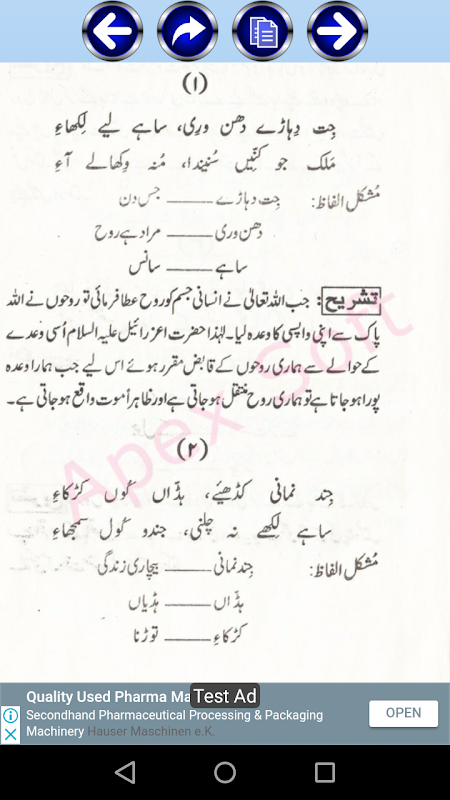 (۱)
جِت دِہاڑے دھن وری، ساہے لیے لِکھاءِ
مَلک جو کنّیں سُنیندا، مُنہ وِکھالے آءِ
مُشکل الفاظ: جِت دہاڑے ــــــ جس دن
دھن وری ــــــ مراد ہے روح
ساہے ــــــ سانس
تشریح: جب اللہ تعالیٰ نے انسانی جسم کو روح عطا فرمائی تو روحوں نے اللہ
پاک سے اپنی واپسی کا وعدہ لیا۔ لہٰذا حضرت اعزرائیل علیہ السلام اُسی وعدے
کے حوالے سے ہماری روحوں کے قابض مقرر ہوئے اس لیے جب ہمارا وعدہ
پورا ہو جاتا ہے تو ہماری روح منتقل ہو جاتی ہے اور ظاہراً موت واقع ہو جاتی ہے۔
(۲)
جِند نمانی کڈھیئے، ہڈّاں کُوں کڑکاءِ
ساہے لِکھے نہ چلنی، جندو کُول سمجھاءِ
مُشکل الفاظ: جِند نمانی ــــــ بیچاری زندگی
ہڈّاں ــــــ ہڈیاں
کڑکاءِ ــــــ توڑنا
Apex Soft
Quality Used Pharma Ma
Test Ad
Secondhand Pharmaceutical Processing & Packaging
Machinery Hauser Maschinen e.K.
OPEN